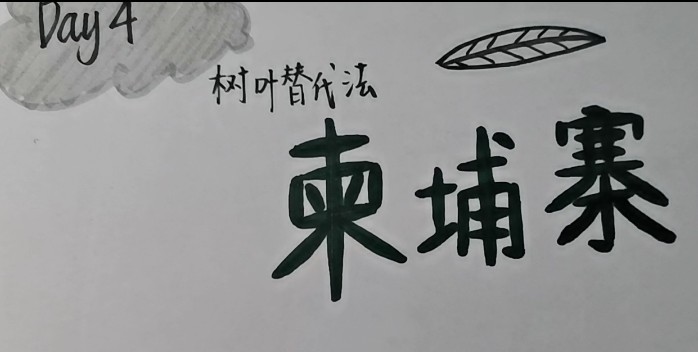 Day 4
树叶替代法
柬埔寨